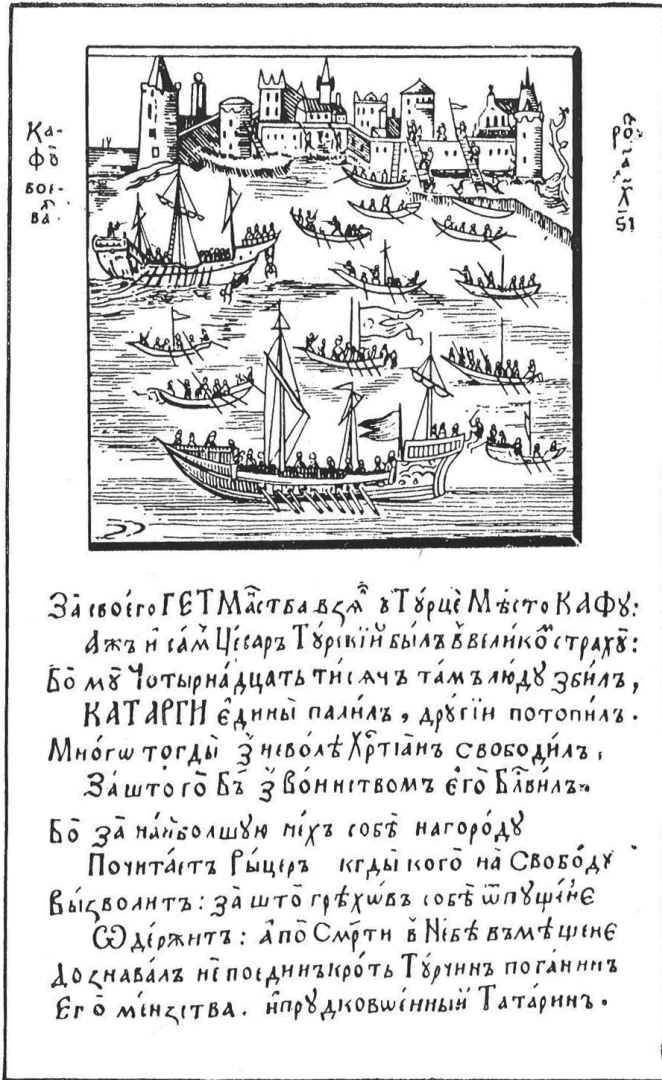 Ка-
фȣ
вое-
ва
роⷦ҇
҂ах҃
ѕ҃і
За своего ГЕТМа̃ства взяⷧ҇ ѹ Тꙋ́рце̃ Мѣсто КАФꙋ:
Ажъ и́ са́мъ Цесаръ Тꙋ́рскїй бы́лъ ꙋ̓ вели́комъ страхꙋ̀:
Бо̀ мꙋ̀ Чоты́рна́дцать ти́сячъ та́мъ лю́дꙋ зби́лъ,
КАТАРГИ є҆дины̀ пали́лъ, дрꙋгїи потопи́лъ.
Мно́гѡ тогды̀ з̾ нево́лѣ Хрⷭ҇тїа́нъ свободи́лъ,
За што̀ го̀ Бг҃ъ з̾ во́инствомъ є҆го̀ Блгⷭ҇ви́лъ.
Бо̀ за на́йболшую неха́ собѣ̀ нагоро́дꙋ
Почита́етъ Ры́церъ кгды̀ кого̀ на̀ Свобо́дꙋ
Вы́зволитъ: за̀ што̀ грѣхѡ́въ собѣ̀ ѿпꙋще́нє
Ѡде́ржитъ: а҆ по̀ Смр҃ти в̾ Не́бѣ въмѣще́нє
дознава́лъ нѐпоединъкро́ть Тꙋ́рчинъ пога́нинъ
Его̀ ме́нзства. и҆ прꙋдковше́нный Тата́ринъ.